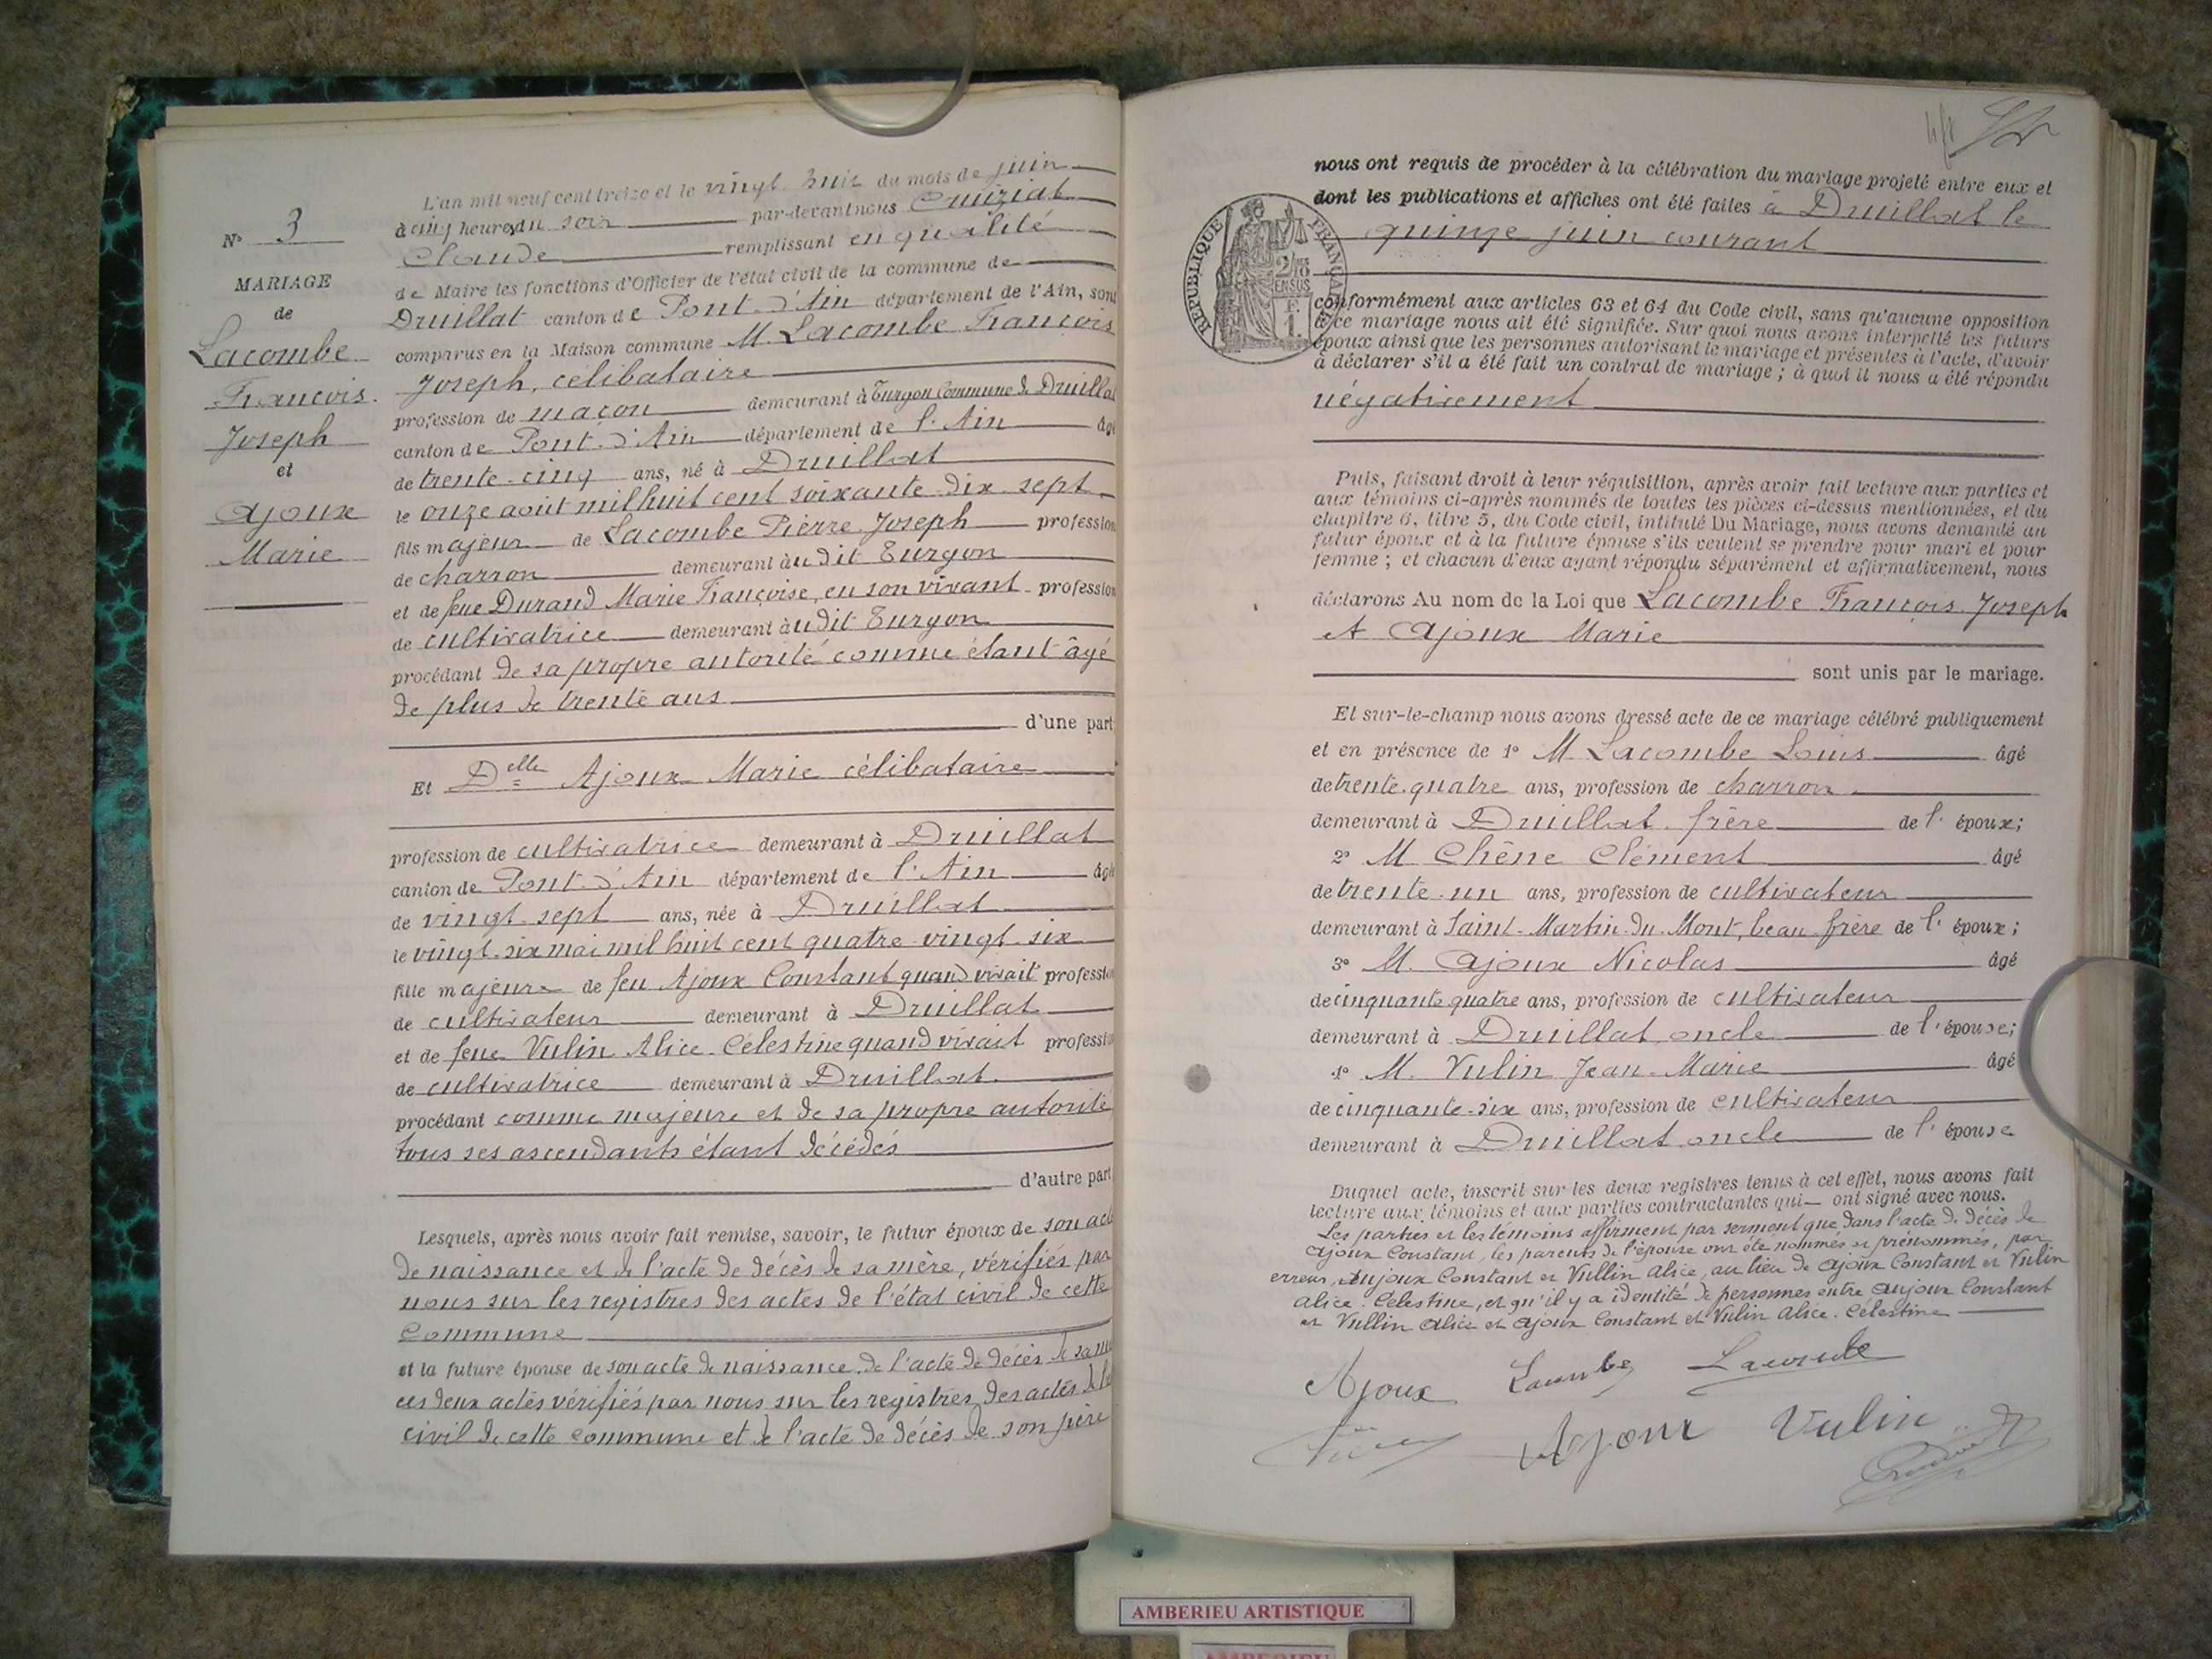 N° 3
MARIAGE
de
Lacombe
François
Joseph
et
Ajoux
Marie
L'an mil neuf cent treize et le vingt huit du mois de juin
à cinq heures du soir par-devant nous Cruiziat
Claude remplissant en qualité
de Maire les fonctions d'Officier de l'état civil de la commune de
Druillat canton de Pont d'Ain département de l'Ain, sont
comparus en la Maison commune M. Lacombe François
Joseph, célibataire
profession de maçon demeurant à Turgon Commune de Druillat
canton de Pont d'Ain département de l'Ain âgé
de trente-cinq ans, né à Druillat
le onze août mil huit cent soixante-dix-sept
fils majeur de Lacombe Pierre Joseph profession
de charron demeurant audit Turgon
et de feue Durand Marie Françoise, en son vivant profession
de cultivatrice demeurant audit Turgon
procédant de sa propre autorité comme étant âgé
de plus de trente ans
d'une part
Et Delle Ajoux Marie célibataire
profession de cultivatrice demeurant à Druillat
canton de Pont d'Ain département de l'Ain âgé
de vingt-sept ans, née à Druillat
le vingt-six mai mil huit cent quatre-vingt-six
fille majeure de feu Ajoux Constant quand vivait profession
de cultivateur demeurant à Druillat
et de feue Vulin Alice Célestine quand vivait profession
de cultivatrice demeurant à Druillat
procédant comme majeure et de sa propre autorité
tous ses ascendants étant décédés
d'autre part
Lesquels, après nous avoir fait remise, savoir, le futur époux de son acte
de naissance et de l'acte de décès de sa mère, vérifiés par
nous sur les registres des actes de l'état civil de cette
Commune
et la future épouse de son acte de naissance, de l'acte de décès de sa
ces deux actes vérifiés par nous sur les registres des actes de
civil de cette commune et de l'acte de décès de son père
nous ont requis de procéder à la célébration du mariage projeté entre eux et
dont les publications et affiches ont été faites à Druillat le
quinze juin courant
RÉPUBLIQUE FRANÇAISE
2/10 EN SUS
F.
1.
conformément aux articles 63 et 64 du Code civil, sans qu'aucune opposition
à ce mariage nous ait été signifiée. Sur quoi nous avons interpellé les futurs
époux ainsi que les personnes autorisant le mariage et présentes à l'acte, d'avoir
à déclarer s'il a été fait un contrat de mariage ; à quoi il nous a été répondu
négativement
Puis, faisant droit à leur réquisition, après avoir fait lecture aux parties et
aux témoins ci-après nommés de toutes les pièces ci-dessus mentionnées, et du
chapitre 6, titre 5, du Code civil, intitulé Du Mariage, nous avons demandé au
futur époux et à la future épouse s'ils veulent se prendre pour mari et pour
femme ; et chacun d'eux ayant répondu séparément et affirmativement, nous
déclarons Au nom de la Loi que Lacombe François Joseph
et Ajoux Marie
sont unis par le mariage.
Et sur-le-champ nous avons dressé acte de ce mariage célébré publiquement
et en présence de 1° M. Lacombe Louis âgé
de trente-quatre ans, profession de charron
demeurant à Druillat frère de l' époux;
2° M Chêne Clément âgé
de trente-un ans, profession de cultivateur
demeurant à Saint-Martin-du-Mont, beau frère de l' époux;
3° M. Ajoux Nicolas âgé
de cinquante quatre ans, profession de cultivateur
demeurant à Druillat oncle de l'épouse;
4° M. Vulin Jean-Marie âgé
de cinquante-six ans, profession de cultivateur
demeurant à Druillat oncle de l' épouse
Duquel acte, inscrit sur les deux registres tenus à cet effet, nous avons fait
lecture aux témoins et aux parties contractantes qui ont signé avec nous.
Les parties et les témoins affirment par serment que dans l'acte de décès de
Ajoux Constant, les parents de l'épouse ont été nommés et prénommés, par
erreur, Aujoux Constant et Vullin Alice, au lieu de Ajoux Constant et Vulin
Alice Célestine, et qu'il y a identité de personnes entre Aujoux Constant
et Vullin Alice et Ajoux Constant et Vulin Alice Célestine
Ajoux Lacombe Lacombe
Ajoux Vulin
AMBERIEU ARTISTIQUE
AMBERIEU